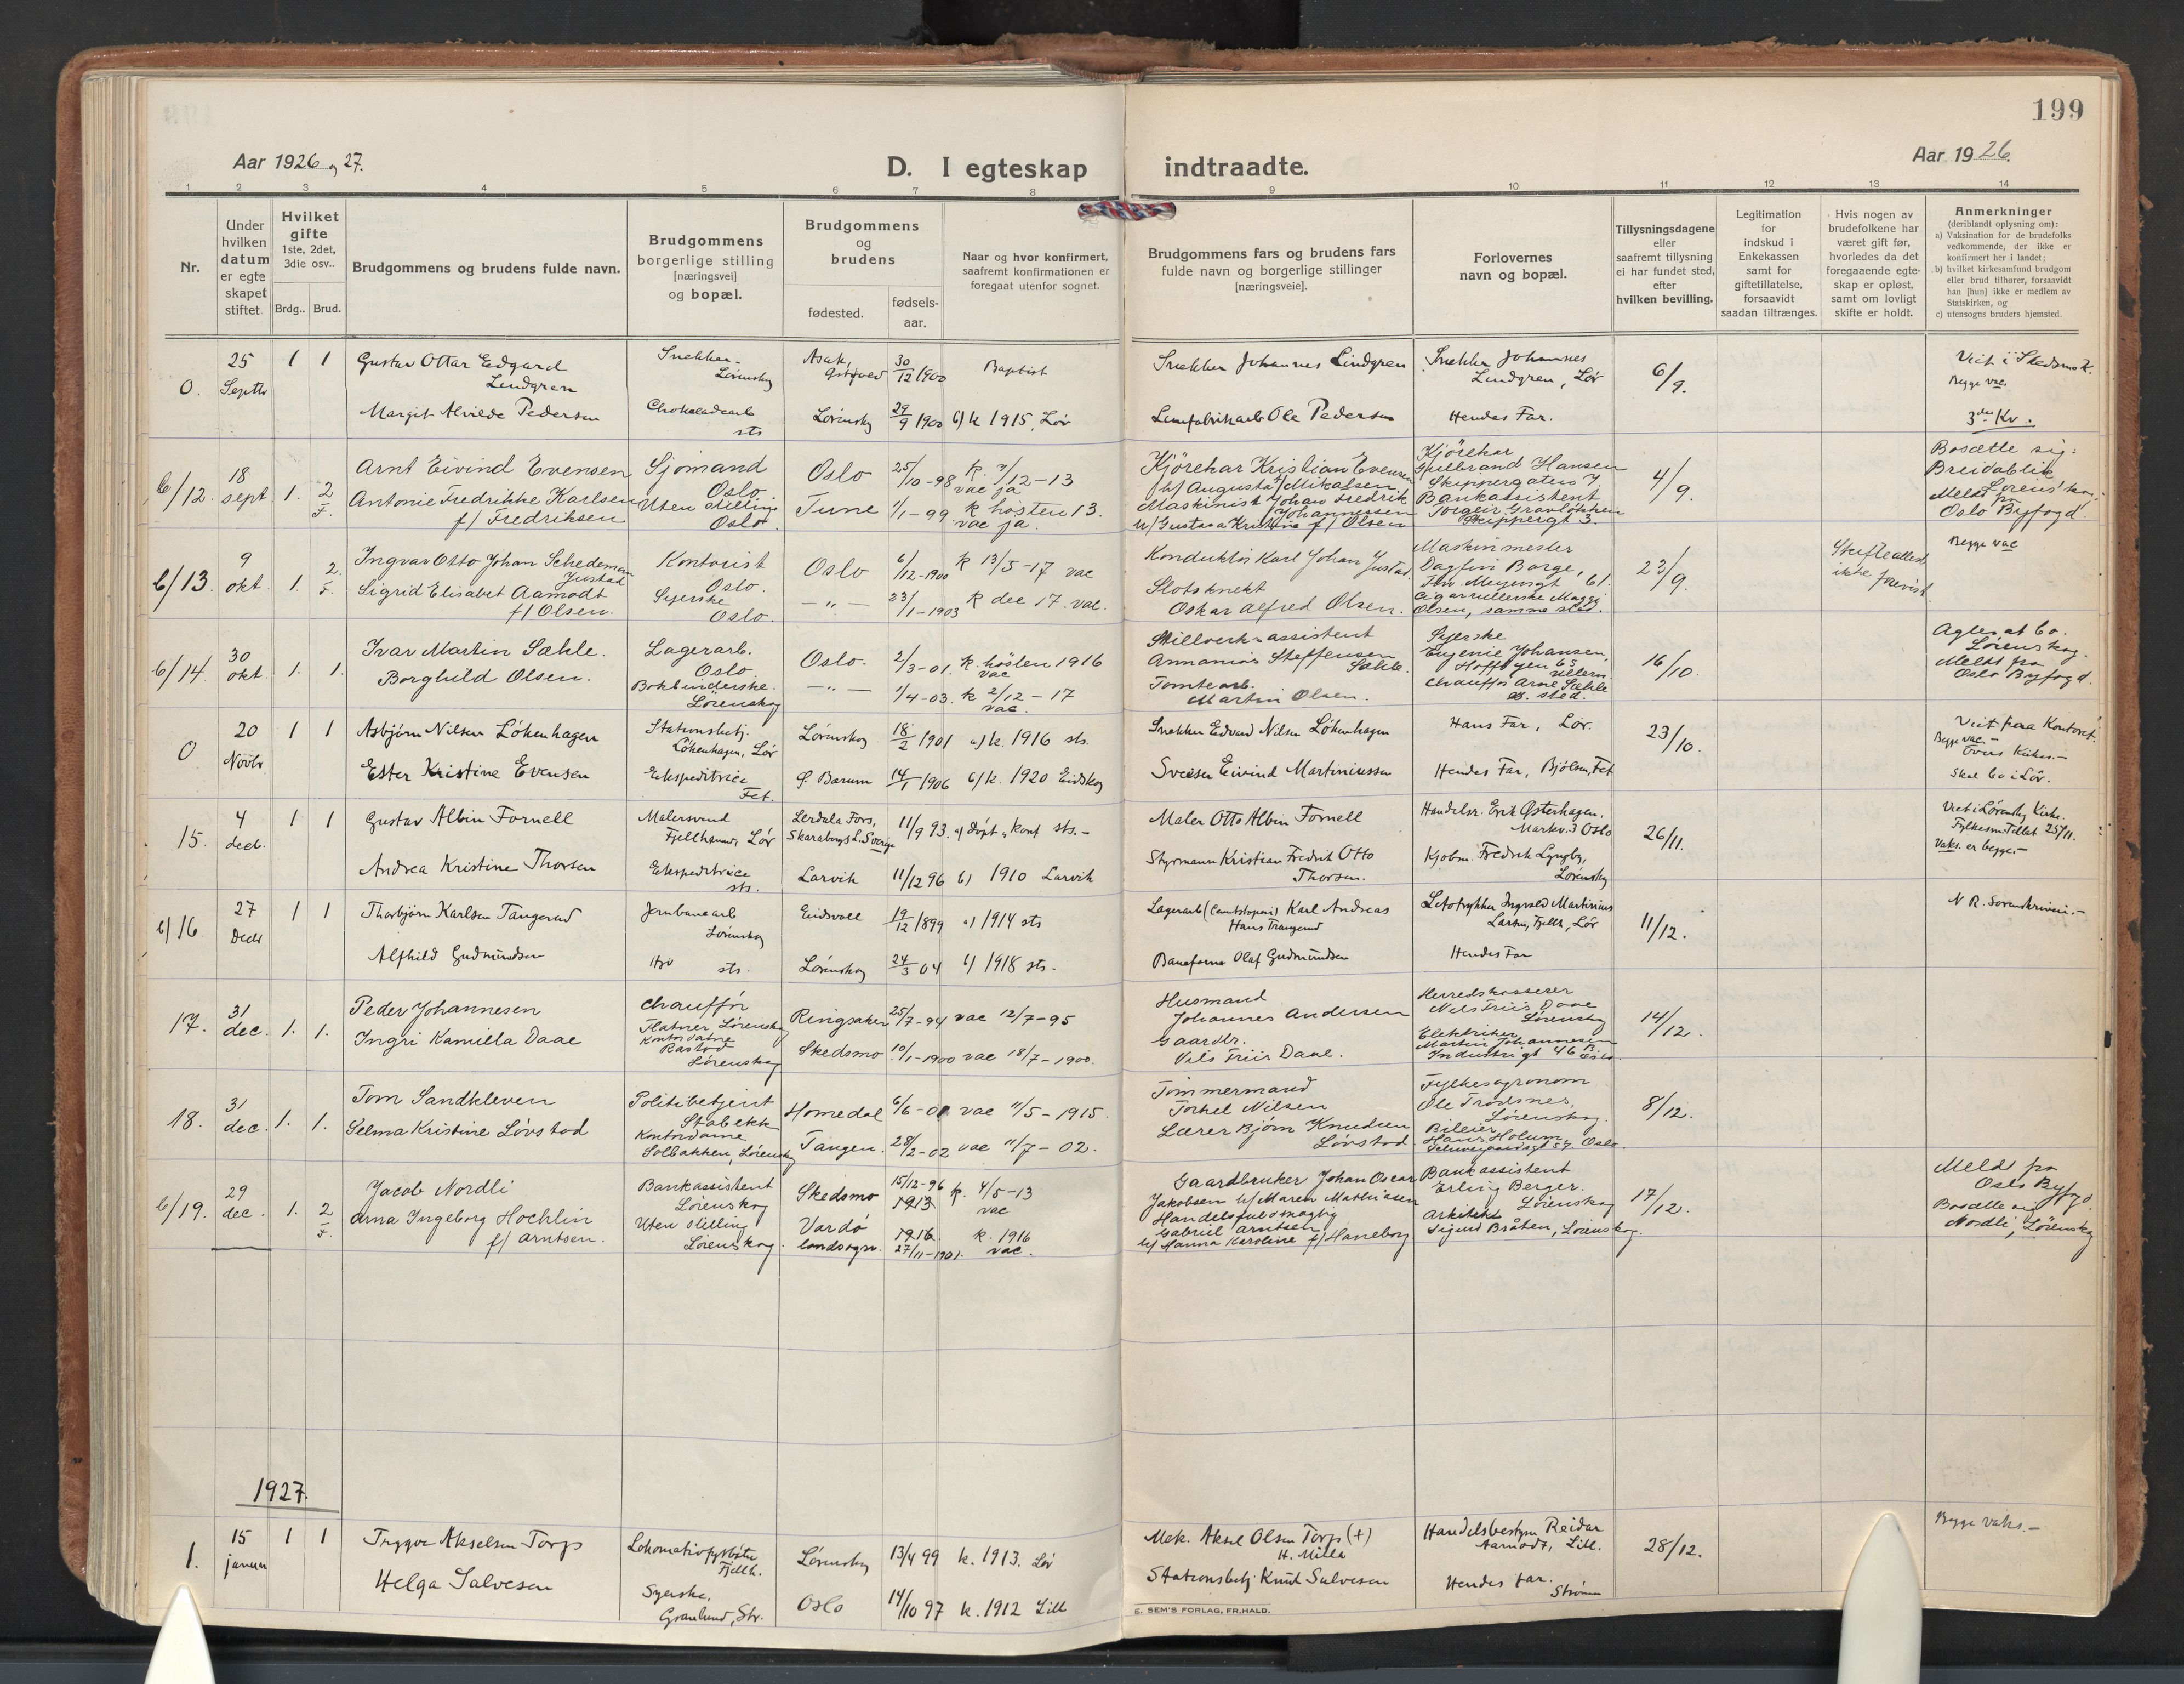 199
Aar 1926 og 27.
D. I egteskap indtraadte.
Aar 1926.
1 2 3 4 5 6 7 8 9 10 11 12 13 14
Nr.
Under
hvilken
datum
er egte
skapet
stiftet.
Hvilket
gifte
1ste, 2det,
3die osv..
Brdg.. Brud.
Brudgommens og brudens fulde navn.
Brudgommens
borgerlige stilling
[næringsvei]
og bopæl.
Brudgommens
og
brudens
fødested.
fødsels-
aar.
Naar og hvor konfirmert,
saafremt konfirmationen er
foregaat utenfor sognet.
Brudgommens fars og brudens fars
fulde navn og borgerlige stillinger
[næringsveie].
Forlovernes
navn og bopæl.
Tillysningsdagene
eller
saafremt tillysning
ei har fundet sted,
efter
hvilken bevilling.
Legitimation
for
indskud i
Enkekassen
samt for
giftetillatelse,
forsaavidt
saadan tiltrænges.
Hvis nogen av
brudefolkene har
været gift før,
hvorledes da det
foregaaende egte-
skap er opløst,
samt om lovligt
skifte er holdt.
Anmerkninger
(deriblandt oplysning om):
a) Vaksination for de brudefolks
vedkommende, der ikke er
konfirmert her i landet;
b) hvilket kirkesamfund brudgom
eller brud tilhører, forsaavidt
han [hun] ikke er medlem av
Statskirken, og
c) utensogns bruders hjemsted.
0. 25 Septbr 1 1
Gustav Ottar Edgard
Lindgren
Snekker
Lørenskog
Asak,
30/12 1900
Baptist
Snekker Johannes Lindgren
Snekker Johannes
Lindgren, Lør
6/9.
Viet i Skedsmo K.
Begge vac.
Margit Alvilde Pedersen
Chokoladearb
sts
Lørenskog
29/9 1900
b) k 1915, Lør
Limfabrikarb Ole Pedersen
Hendes Far.
3die Kv.
b/12. 18 sept. 1. 2 F.
Arnt Eivind Evensen
Sjømand
Oslo
Oslo
25/10-98
k. 7/12-13
vac ja
Kjörekar Kristian Evensen
h/ Augusta f/ Mikalsen
Kjörekar
Gulbrand Hansen
Skippergaten 7
4/9.
Bosætte sig:
Breidablik
Lörenskog.
Meldt fra
Oslo Byfogd.
Antonie Fredrikke Karlsen
f/ Fredriksen
Uten stilling
Oslo.
Tune
1/1-99
k hösten 13.
vac ja.
Maskinist Johan Fredrik
Johannessen
h/ Gustava Kristine f/ Olsen
Bankassistent
Torgeir Gravlökken
Skippergt 3.
b/13. 9 okt. 1. 2. F.
Ingvar Otto Johan Schedeman
Justad
Kontorist
Oslo.
Oslo
6/12-1900
k 13/5-17 vac
Konduktör Karl Johan Justad.
Maskinmester
Dagfin Borge,
Tov. Meyersgt 61.
23/9.
Skifteattest
ikke forevist.
Begge vac
Sigrid Elisabet Aamodt
f/ Olsen.
Syerske
Oslo.
— " —
23/1-1903
k dec 17. vac.
Slotsknekt
Oskar Alfred Olsen.
Cigarrullerske Maggi
Olsen, samme sted.
b/14. 30 okt. 1. 1.
Ivar Martin Sæhle.
Lagerarb.
Oslo
Oslo.
2/3-01.
k. hösten 1916
vac
Stillverk-assistent
Annanias Steffensen
Sæhle.
Syerske
Eugenie Johansen,
Hoffsyen 65
Ullern.
16/10.
Agter at bo.
Lörenskog.
Meldt fra
Oslo Byfogd.
Borghild Olsen.
Bokbinderske.
Lörenskog
— " —
1/4-03.
k 2/12-17
vac.
Tomtearb.
Martin Olsen.
Chaufför Arne Sæhle
s. sted.
0 20 Novbr 1 1
Asbjørn Nilsen Løkenhagen
Stationsbetj.
Løkenhagen, Lør
Lørenskog
18/2 1901
a) k. 1916 sts.
Snekker Edvard Nilsen Løkenhagen
Hans Far, Lør.
23/10.
Viet fra Kontoret.
Begge vac.-
Øvres Kirkes.-
Skal bo i Lør.
Ester Kristine Evensen
Ekspeditrice
Fet.
Ø. Bærum
14/1 1906
b) k. 1920 Eidskog
Sveiser Eivind Martiniussen
Hendes Far, Bjølsen, Fet
15. 4 decb. 1 1
Gustav Albin Fornell
Malersvend
Fjellhammer, Lør
Lerdala Fors,
Skaraborgs L. Sverige
11/9 93.
a) døpt og konf sts.-
Maler Otto Albin Fornell
Handelsr. Erik Østerhagen.
Markv. 3 Oslo
26/11.
Viet i Lørenskog Kirke.
Fylkesm. Tillat. 25/11.
Vaks. er begge.-
Andrea Kristine Thorsen
Ekspeditrice
sts.
Larvik
11/12 96
b) 1910 Larvik
Styrmann Kristian Fredrik Otto
Thorsen.
Kjøbm. Fredrik Lyngby,
Lørenskog
b/16 27 Decbr 1 1
Thorbjørn Karlsen Tangerud
Jernbanearb
Lørenskog
Eidsvoll
19/12 1899
a) 1914 sts
Lagerarb Karl Andreas
Hans Trangerud
Litotrykker Ingvald Martinius
Larsen, Fjellh, Lør
11/12.
N R. Sorenskriveri.-
Alfhild Gudmundsen
sts.
Lørenskog
24/3 04
b) 1918 sts-
Baneform Olaf Gudmundsen
Hendes Far
17. 31 dec. 1. 1.
Peder Johannesen
Chaufför
Flatner Lörenskog
Ringsaker
25/7-94
vac 12/7-95
Husmand
Johannes Andersen
Herredskasserer
Nils Friis Daae
Lörenskog
14/12.
Ingri Kamilla Daae
Kontordame
Rastad
Lörenskog
Skedsmo
10/1-1900
vac 18/7-1900.
Gaardbr.
Nils Friis Daae.
Elektriker
Martin Johannesen
Industrigt 46 B. Oslo.
18. 31 dec. 1. 1.
Tom Sandkleven
Politibetjent
Stabekk
Homedal
6/6-01
vac 11/5-1915.
Tömmermand
Torkel Nilsen
Fylkesagronom
Ole Trödsnes,
Lörenskog.
8/12.
Selma Kristine Lövstad
Kontordame
Solbakken, Lörenskog
Tangen.
28/2-02
vac 11/7-02.
Lærer Bjørn Knudsen
Lövstad.
Bileier
Hans Holum
Schweigaardsgt 59. Oslo.
b/19. 29 dec. 1. 2 F.
Jacob Nordli
Bankassistent
Lörenskog
Skedsmo
15/12-96
1913
k. 4/5-13
vac
Gaardbruker Johan Oscar
Jakobsen h/ Maren Mathiasen
Bankassistent
Erling Berger.
Lörenskog
17/12.
Meldt fra
Oslo Byfgd.
Bosætte sig
Nordli, Lörenskog
Arna Ingeborg Hochlin
f/ Arntsen.
Uten stilling
Lörenskog.
Vardö
landsogn.
1916.
27/11-1901.
k. 1916
vac.
Handelsfuldmægtig
Gabriel Arntsen
h/ Hanna Karoline f/ Haneborg
Arkitekt
Sigurd Bråten, Lörenskog.
1927.
1. 15 januar 1 1
Trygve Akselsen Torp
Lokomotivfyrbøter
Fjellh.
Lørenskog
13/4 99
k. 1913. Lør
Mek. Aksel Olsen Torp (+)
H. Milla
Handelsbestyrer Reidar
Aamodt, Lill.
28/12.
Begge vaks.-
Helga Salvesen
Syerske,
Granlund, Str.
Oslo
14/10 97
k. 1912 Lill
Stationsbetj. Knut Salvesen
Hendes Far.
Strøm
E. SEM'S FORLAG, FR.HALD.